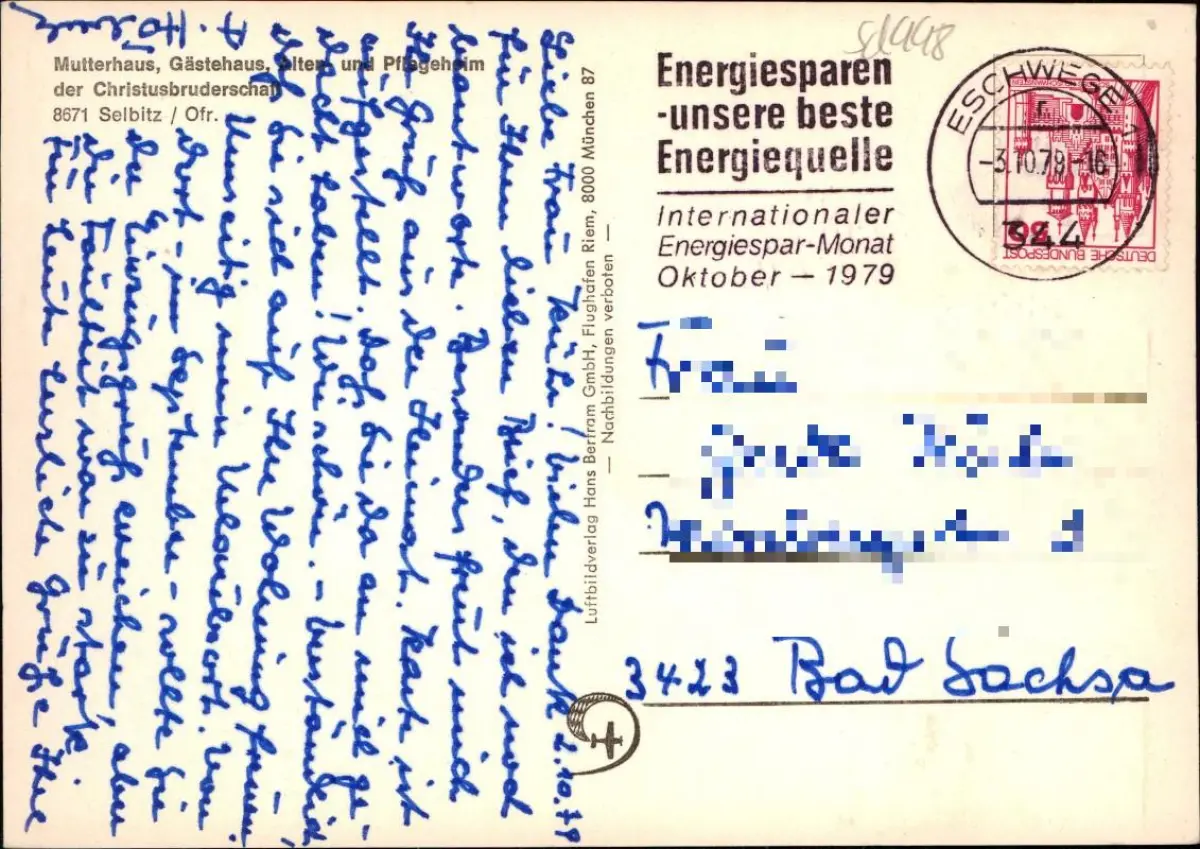 Mutterhaus, Gästehaus, Alten- und Pflegeheim
der Christusbruderschaft
8671 Selbitz / Ofr.
Luftbildverlag Hans Bertram GmbH, Flughafen Riem, 8000 München 87
— Nachbildungen verboten —
Energiesparen
-unsere beste
Energiequelle
Internationaler
Energiespar-Monat
Oktober — 1979
ESCHWEGE 1
r
-3.10.79-16
344
DEUTSCHE BUNDESPOST
2.10.79
Liebe Frau! Vielen Dank
für Ihren lieben Brief, den ich noch
beantworte. Besonders freut mich
Ihr Gruß aus der Heimat. Karte ist
aufgestellt. Daß Sie da an mich ge-
dacht haben! Wie schön. - Verständlich
daß Sie sich auf Ihre Wohnung freuen.
Umseitig mein Urlaubsort. Von
dort - im September - sollte Sie
der Gruß erreichen, aber
die Faulheit war zu stark.
Für heute herzliche Grüße Ihre
Frau
3423 Bad Sachsa